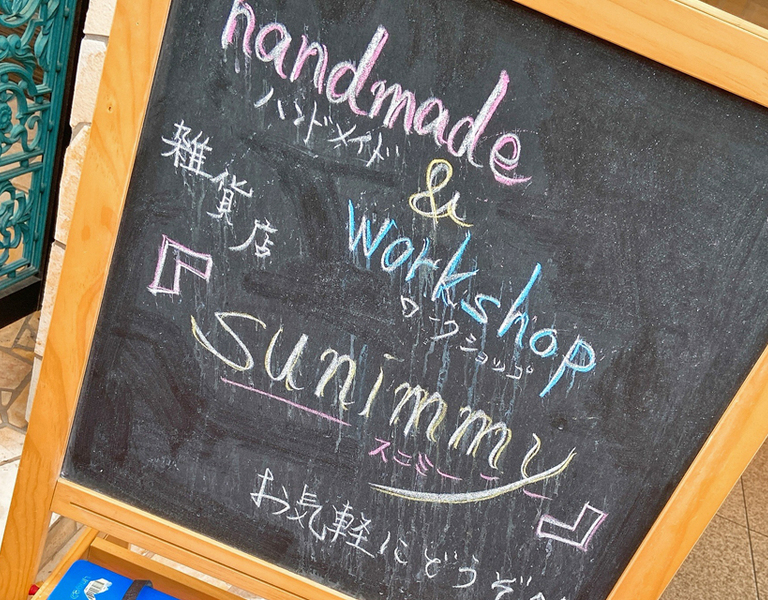 handmade
ハンドメイド
&
雑貨店
workshop
ワークショップ
『sunimmy』
スニミー
お気軽にどうぞ